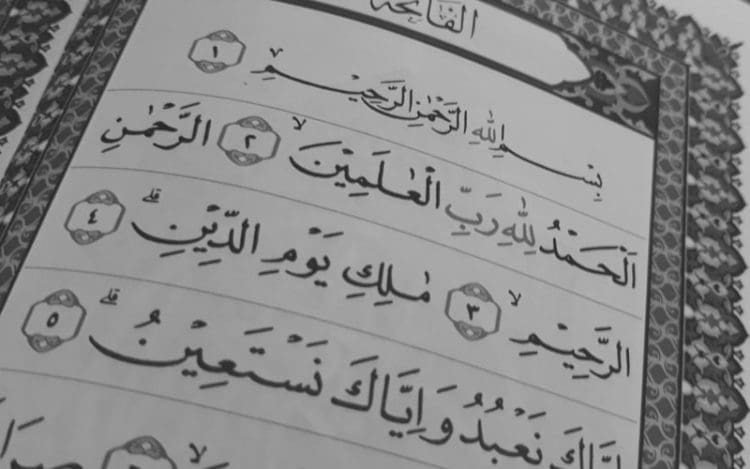 الفاتحة
بِسْمِ اللهِ الرَّحْمٰنِ الرَّحِيْمِ ١
اَلْحَمْدُ لِلّٰهِ رَبِّ الْعٰلَمِيْنَۙ ٢ الرَّحْمٰنِ
الرَّحِيْمِۙ ٣ مٰلِكِ يَوْمِ الدِّيْنِۗ ٤
اِيَّاكَ نَعْبُدُ وَاِيَّاكَ نَسْتَعِيْنُۗ ٥